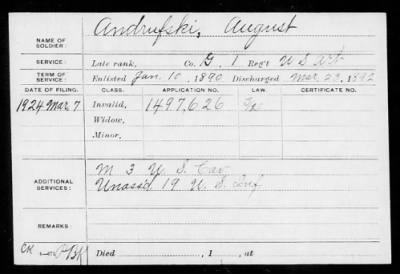 NAME OF SOLDIER: Andrufski, August
SERVICE: Late rank, Co. G, 1 Reg't U S Art
TERM OF SERVICE: Enlisted Jan. 10, 1890 Discharged Mar. 23, 1892
DATE OF FILING. CLASS. APPLICATION NO. LAW. CERTIFICATE NO.
1924 Mar. 7 Invalid, 1497,626
Widow,
Minor,
ADDITIONAL SERVICES: M 3 U. S. Cav
Unass'd 19 U. S. Inf
REMARKS:
Died , 1 , at